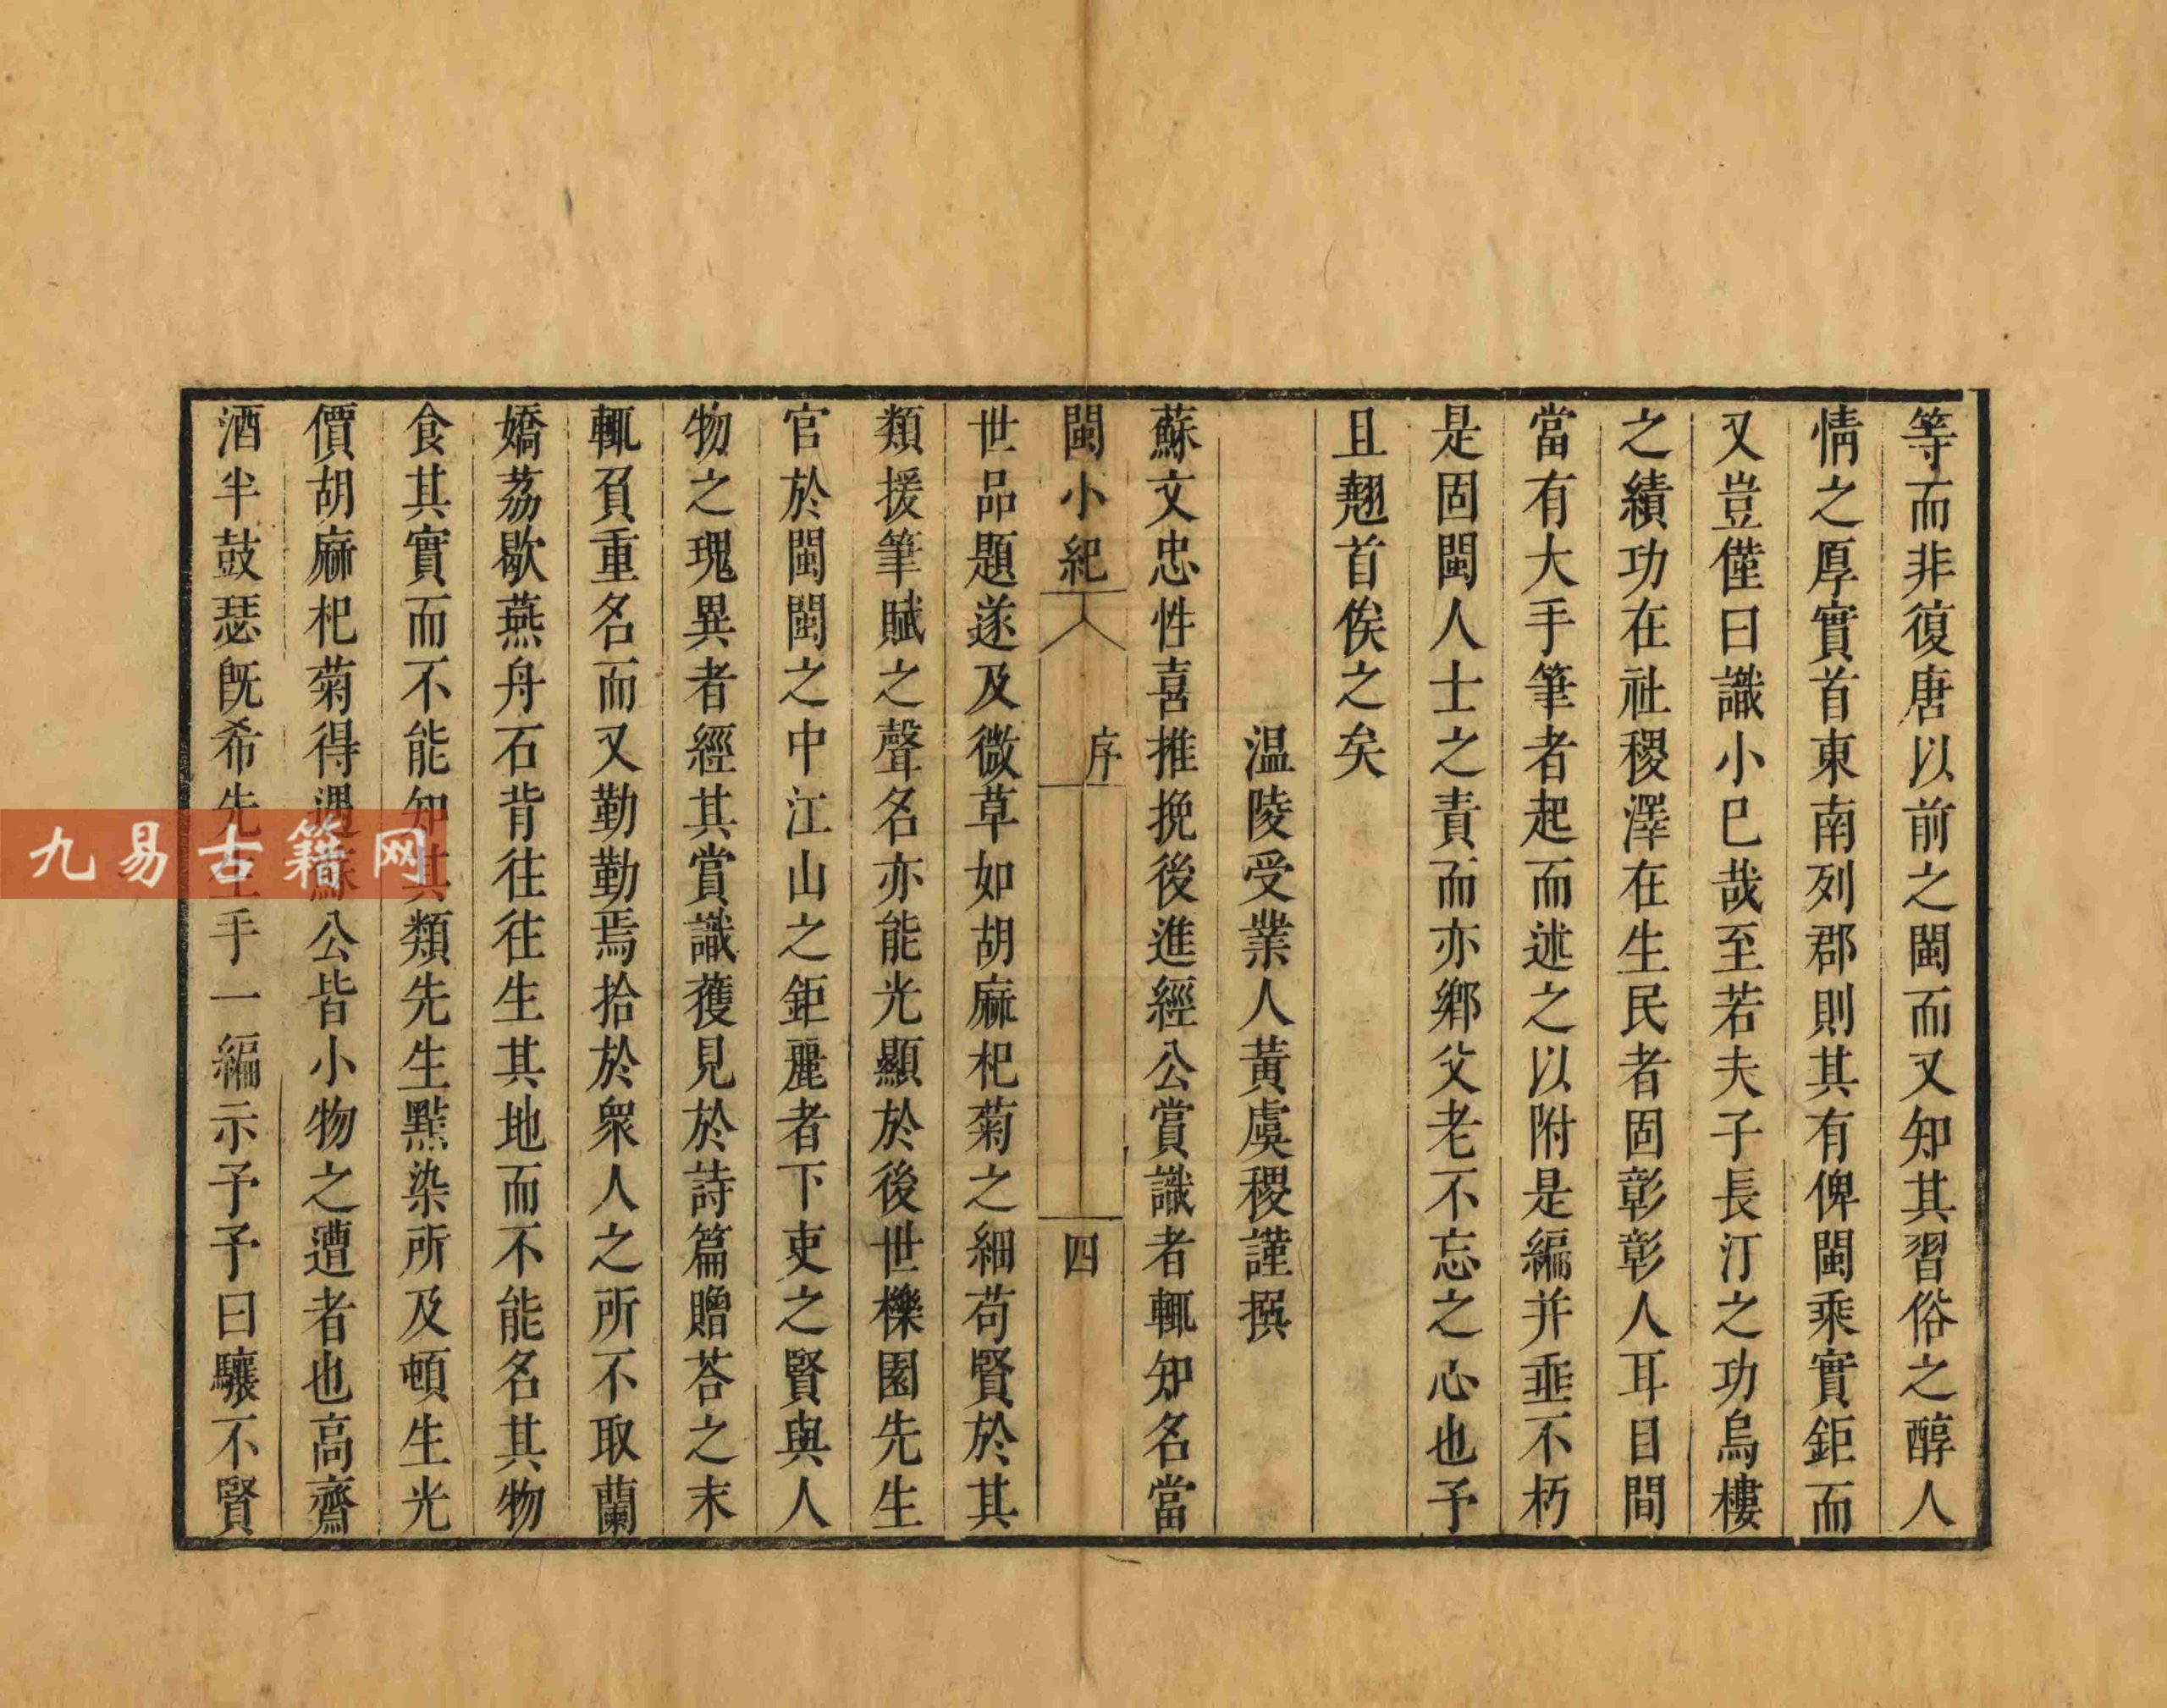 等而非復唐以前之閩而又知其習俗之醇人
情之厚實首東南列郡則其有俾閩乘實鉅而
又豈僅曰識小已哉至若夫子長汀之功烏樓
之績功在社稷澤在生民者固彰彰人耳目間
當有大手筆者起而述之以附是編并垂不朽
是固閩人士之責而亦鄉父老不忘之心也予
且翹首俟之矣
温陵受業人黃虞稷謹撰
蘇文忠性喜推挽後進經公賞識者輒知名當
閩小紀 序 四
世品題遂及微草如胡麻杞菊之細苟賢於其
類援筆賦之聲名亦能光顯於後世櫟園先生
官於閩閩之中江山之鉅麗者下吏之賢與人
物之瑰異者經其賞識獲見於詩篇贈荅之末
輒負重名而又勤勤焉拾於衆人之所不取蘭
嬌荔歇燕舟石背往往生其地而不能名其物
食其實而不能知其類先生點染所及頓生光
價胡麻杞菊得遇蘇公皆小物之遭者也高齋
酒半鼓瑟旣希先生手一編示予予曰驤不賢
九易古籍网